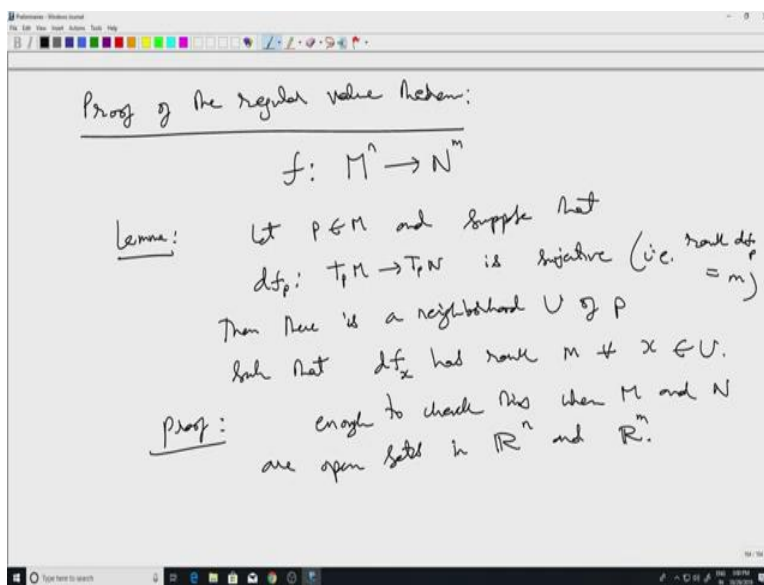 Preliminaries - Windows Journal
File Edit View Insert Actions Tools Help
Proof of the regular value theorem:
f: Mⁿ → Nᵐ
Lemma: Let p ∈ M and suppose that
df_p: T_p M → T_p N is surjective (i.e. rank df_p = m)
Then there is a neighborhood U of p
such that df_x has rank m ∀ x ∈ U.
Proof: enough to check this when M and N
are open sets in ℝⁿ and ℝᵐ.
Type here to search